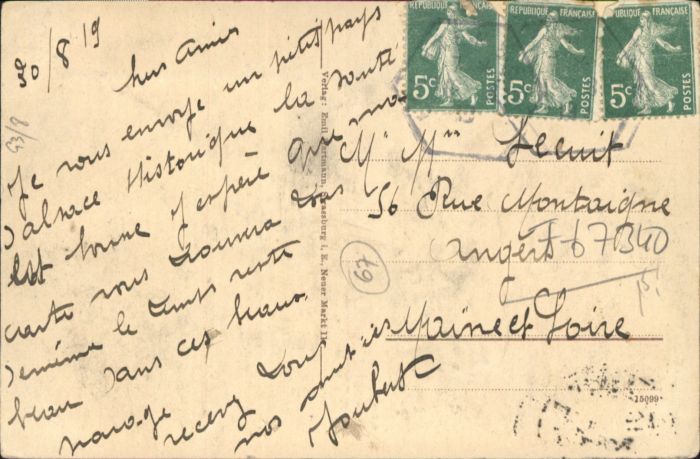 30/8 19
Mes Amis
Je vous envoye un petit pays
d'alsace Historique la santé
est bonne j'espere que ma
carte vous trouvera tous
de meme le temps reste
beau dans ces beaux
parage recevez tous
nos amitiés
Joubert
G3/8
Verlag: Emil Hartmann, Strassburg i. E., Neuer Markt
RÉPUBLIQUE FRANÇAISE
5c POSTES
RÉPUBLIQUE FRANÇAISE
5c POSTES
RÉPUBLIQUE FRANÇAISE
5c POSTES
Mr Mme
56 Rue Montaigne
angers
Maine et Loire
67
F 67340
15099